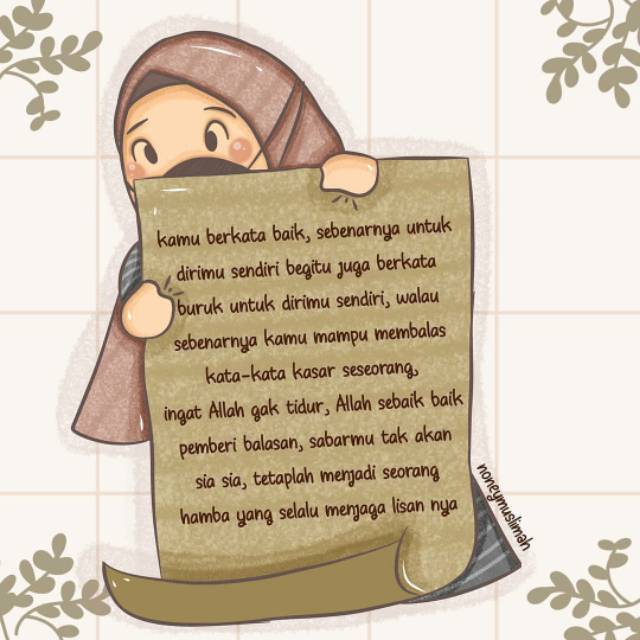 kamu berkata baik, sebenarnya untuk
dirimu sendiri begitu juga berkata
buruk untuk dirimu sendiri, walau
sebenarnya kamu mampu membalas
kata-kata kasar seseorang,
ingat Allah gak tidur, Allah sebaik baik
pemberi balasan, sabarmu tak akan
sia sia, tetaplah menjadi seorang
hamba yang selalu menjaga lisan nya
noneymuslimah